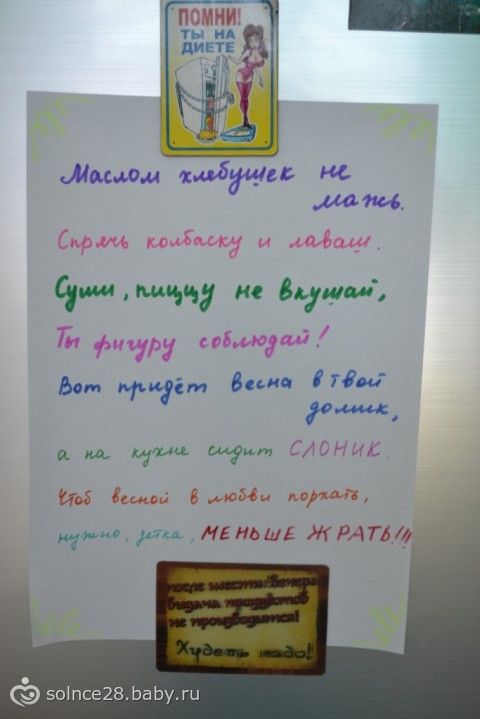 ПОМНИ!
ТЫ НА
ДИЕТЕ
Маслом хлебушек не
мажь.
Спрячь колбаску и лаваш.
Суши, пиццу не вкушай,
Ты фигуру соблюдай!
Вот придёт весна в твой
домик,
а на кухне сидит СЛОНИК.
Чтоб весной в любви порхать,
нужно, детка, МЕНЬШЕ ЖРАТЬ!!!
после шести вечера
выдача продуктов
не производится!
Худеть надо!
solnce28.baby.ru